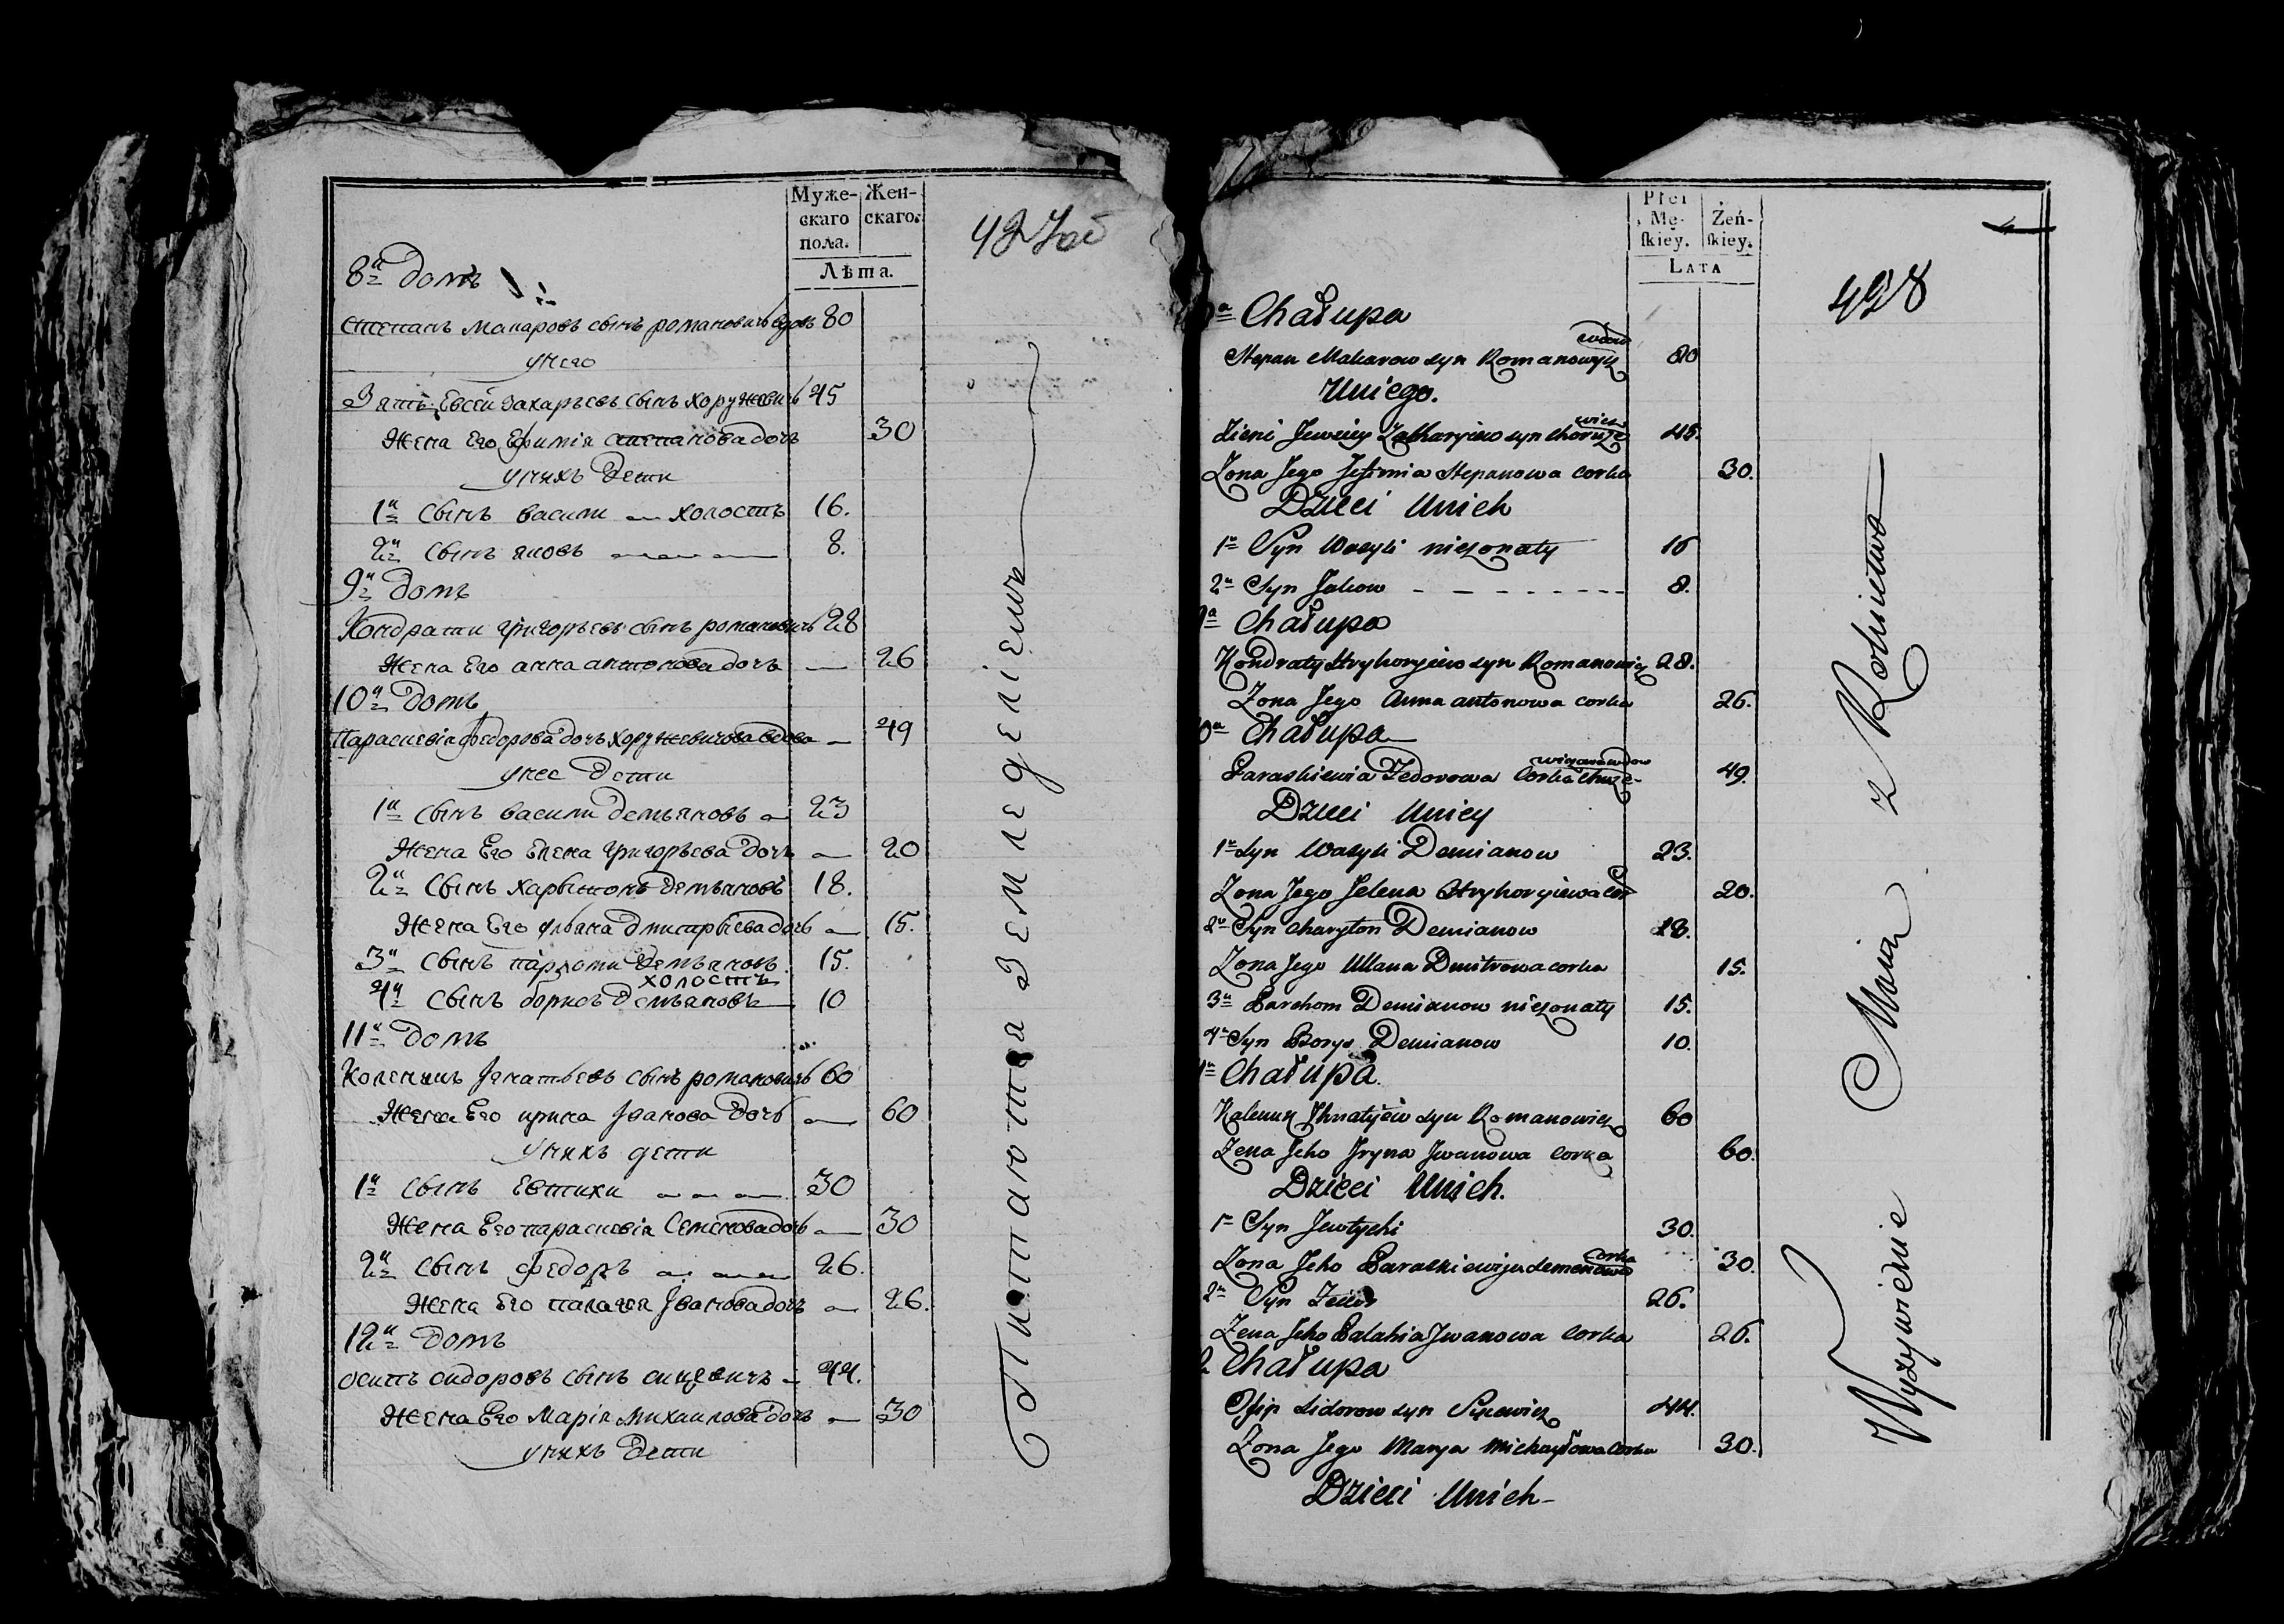 Муже-
скаго
пола.
Жен-
скаго.
Лѣта.
8й домъ
степанъ макаровъ сынъ романовичъ вдовъ 80
унего
Зять Евсей захарьевъ сынъ хоружевичъ 45
Жена Его Ефимія степанова дочь 30
унихъ дети
1й сынъ васили холостъ 16.
2й сынъ яковъ 8.
9й домъ
Кондрати григорьевъ сынъ романовичъ 28
Жена Его анна антонова дочь 26
10й домъ
Параскевія федорова дочь хоружевичова вдова 49
унее дети
1й сынъ васили демьяновъ 23
Жена Его Елена григорьева дочь 20
2й сынъ харытонъ демьяновъ 18.
Жена Его ульяна дмитрыева дочь 15.
3й сынъ пархоми демьяновъ 15.
холостъ
4й сынъ борисъ демьяновъ 10
11й домъ
Коленикъ Igнатьевъ сынъ романовичъ 60
Жена Его ирина Iванова дочь 60
унихъ дети
1й сынъ евтихи 30
Жена Его параскевія Семенова дочь 30
2й сынъ федоръ 26.
Жена Его палагея Iванова дочь 26.
12й домъ
осипъ сидоровъ сынъ сицевичъ 44.
Жена Его Марія михаилова дочь 30
унихъ дети
Питаютца Земледеліемъ
Płci
Mę-
ſkiey.
Żeń-
ſkiey.
LATA
428
Chałupa
wdow
Stepan Makarow syn Romanowicz 80
Uniego.
wicz
Zieni Jewsiey Zakharyiew syn Choruże 45.
Zona Jego Jefimia Stepanowa corka 30.
Dzieci Unich
1n Syn Wasyli nieżonaty 16
2n Syn Jakow 8.
9a Chałupa
Kondraty Hryhoryiew syn Romanowicz 28.
Zona Jego Anna antonowa corka 26.
10a Chałupa
wiczowa wdow
Paraskiewia Fedorowa Corka Chorże- 49.
Dzieci Uniey
1n Syn Wasyli Demianow 23.
Zona Jego Jelena Hryhoryiewa Cor 20.
2n Syn Charyton Demianow 18.
Zona Jego Ullana Dmitrowa corka 15.
3n Parchom Demianow nieżonaty 15.
4n Syn Borys Demianow 10.
Chałupa.
Kalenik Jhnatyew syn Romanowicz 60
Zena Jeho Jryna Jwanowa Corka 60.
Dzieci Unich.
1n Syn Jewtychi 30.
Corka
Zona Jeho Paraskiewija Semenowa 30.
2n Syn 26.
Zena Jeho Palahia Jwanowa Corka 26.
Chałupa
Osip Sidorow syn Sycewicz 44.
Zona Jego Marya Michayłowa Corka 30.
Dzieci Unich-
Wyżywienie Maią z Rolnictwa